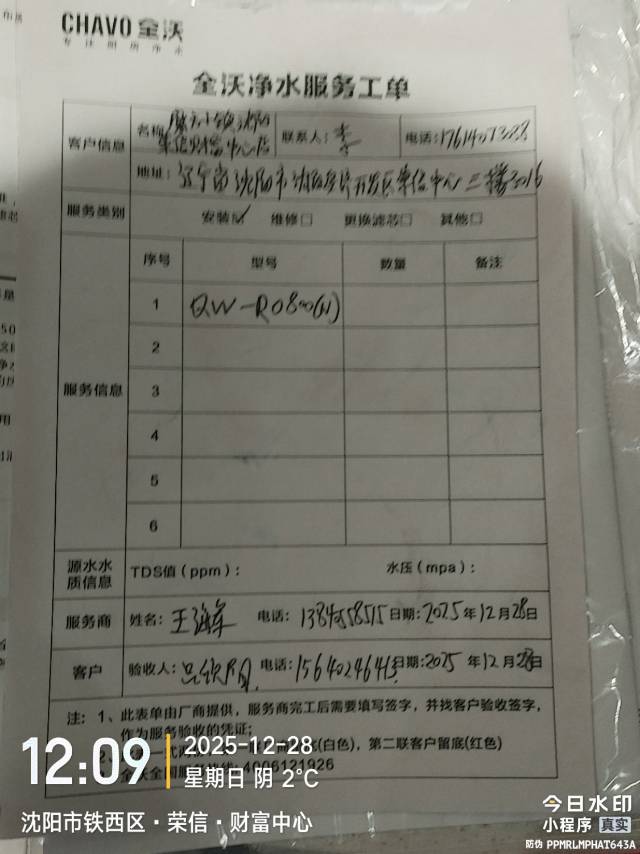 CHAVO 全沃
专注厨房净水
全沃净水服务工单
客户信息
名称:
联系人: 李
电话: 17614071328
地址: 辽宁省沈阳市 开发区荣信中心 三楼3016
服务类别
安装☑ 维修□ 更换滤芯□ 其他□
服务信息
序号 型号 数量 备注
1 QW-RO800(N)
2
3
4
5
6
源水水质信息
TDS值(ppm): 水压(mpa):
服务商
姓名: 王海军 电话: 日期: 2025年12月28日
客户
验收人: 电话: 15640246413 日期: 2025年12月28日
注: 1、此表单由厂商提供,服务商完工后需要填写签字,并找客户验收签字,
作为服务验收的凭证;
(白色),第二联客户留底(红色)
4006121926
12:09
2025-12-28
星期日 阴 2℃
沈阳市铁西区·荣信·财富中心
今日水印
小程序 真实
防伪 PPMRLMPHAT643A